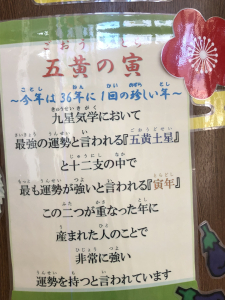 五黄の寅
～今年は36年に1回の珍しい年～
九星気学において
最強の運勢と言われる『五黄土星』
と十二支の中で
最も運勢が強いと言われる『寅年』
この二つが重なった年に
産まれた人のことで
非常に強い
運勢を持つと言われています